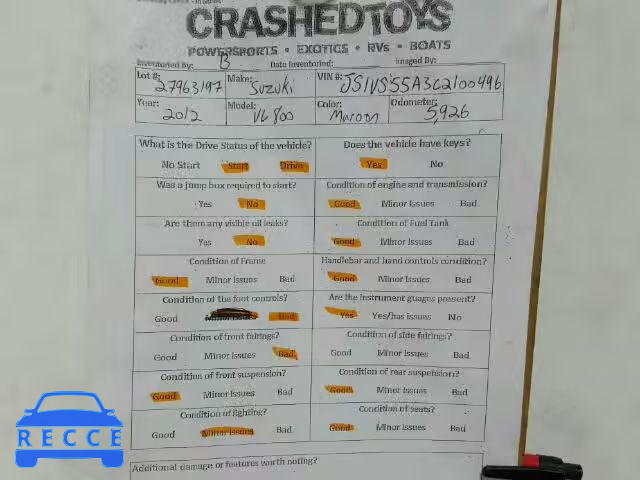 CRASHEDTOYS
POWERSPORTS • EXOTICS • RVs • BOATS
Inventoried By: B Date Inventoried: Imaged By:
Lot #: 27963197 Make: Suzuki VIN #: JS1VS55A3C2100496
Year: 2012 Model: VL800 Color: Maroon Odometer: 5,926
What is the Drive Status of the vehicle? Does the vehicle have keys?
No Start Start Drive Yes No
Was a jump box required to start? Condition of engine and transmission?
Yes No Good Minor Issues Bad
Are there any visible oil leaks? Condition of Fuel Tank
Yes No Good Minor Issues Bad
Condition of Frame Handlebar and hand controls condition?
Good Minor Issues Bad Good Minor Issues Bad
Condition of the foot controls? Are the instrument guages present?
Good Minor Issues Bad Yes Yes/has issues No
Condition of front fairings? Condition of side fairings?
Good Minor Issues Bad Good Minor Issues Bad
Condition of front suspension? Condition of rear suspension?
Good Minor Issues Bad Good Minor Issues Bad
Condition of lighting? Condition of seats?
Good Minor Issues Bad Good Minor Issues Bad
Additional damage or features worth noting?
RECCE